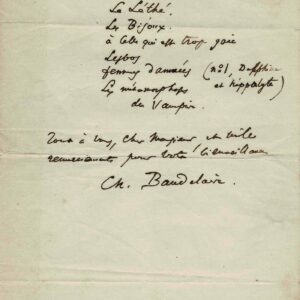 Le Léthé.
Les Bijoux.
à Celle qui est trop gaie
Lesbos
femmes damnées (no 1, Delphine et hippolyte)
Les métamorphoses
du Vampire.
Tout à vous, cher Monsieur et mille
remerciements pour votre bienveillance
Ch. Baudelaire.